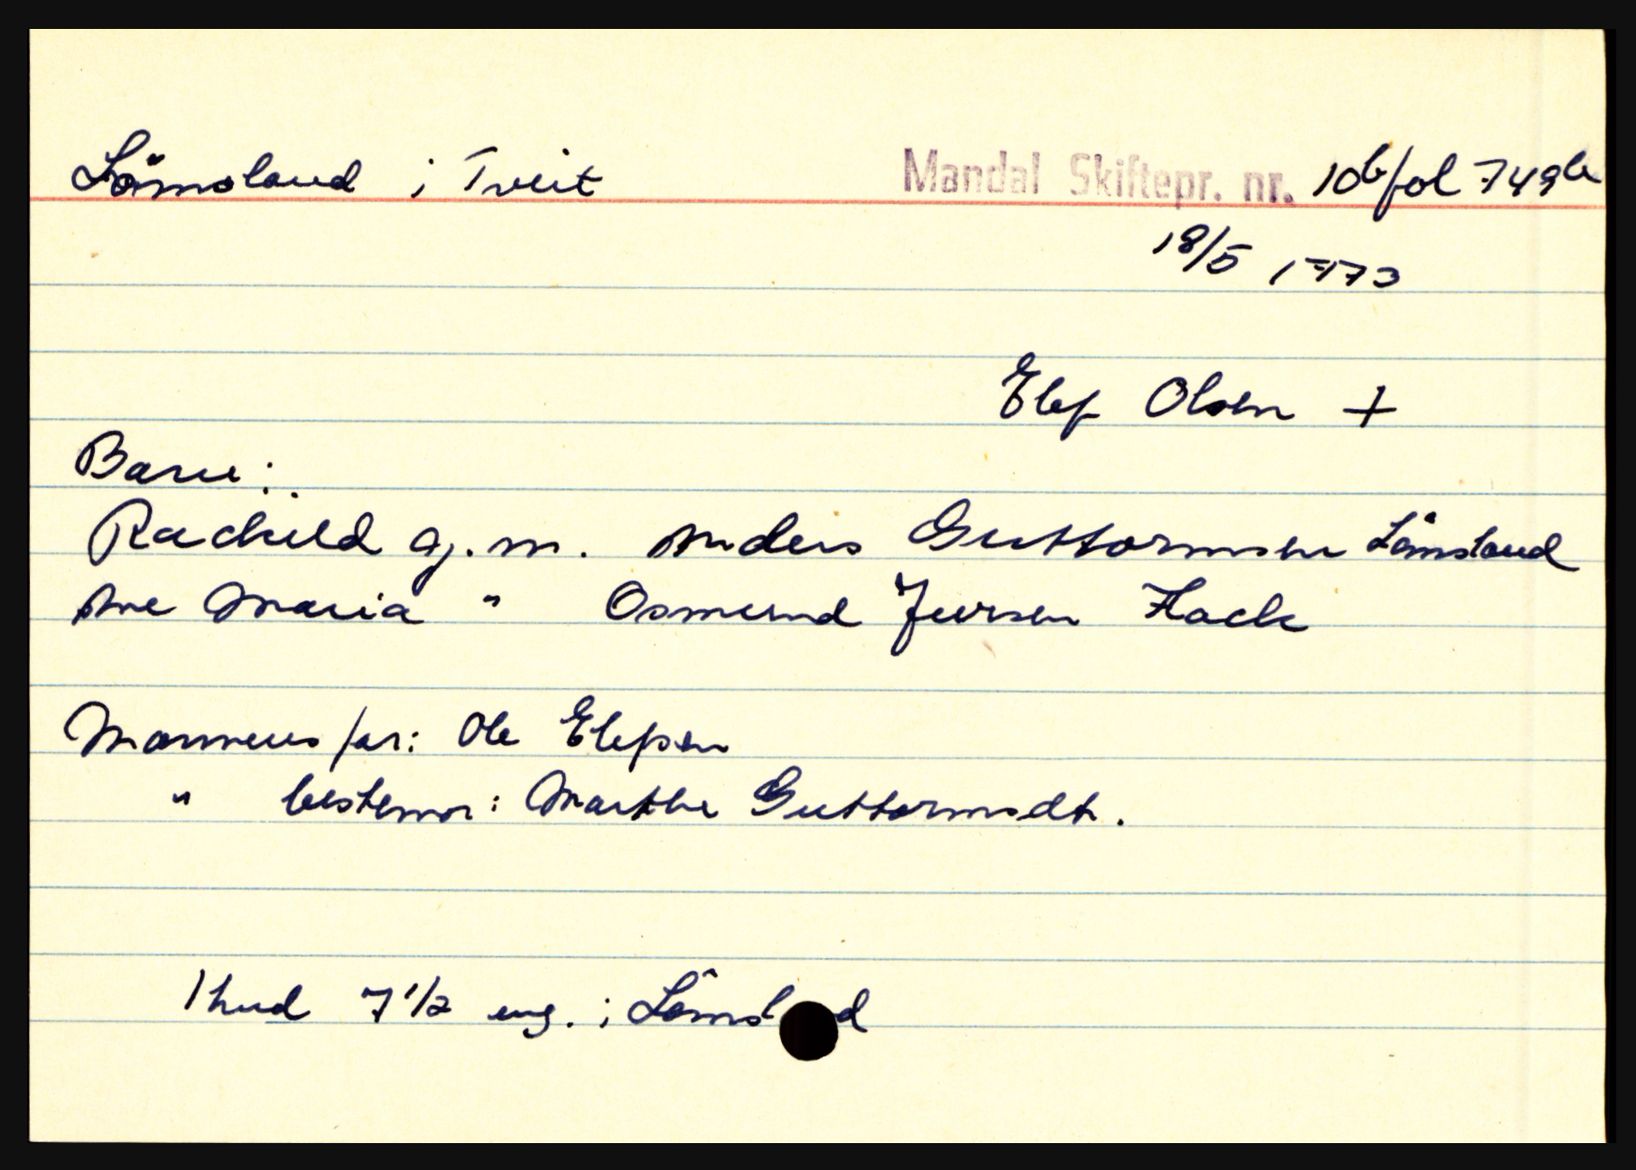 Lömsland i Tveit Mandal Skiftepr. nr. 10b fol 749b
18/5 1773
Elef Olsen +
Barn:
Rachild g. m. Anders Guttormsen Lömsland
Ane Maria " Osmund Jversen Flack
Mannens far: Ole Elefsen
" bestemor: Marthe Guttormsdt.
1 hud 7 1/2 eng. i Lömsl d